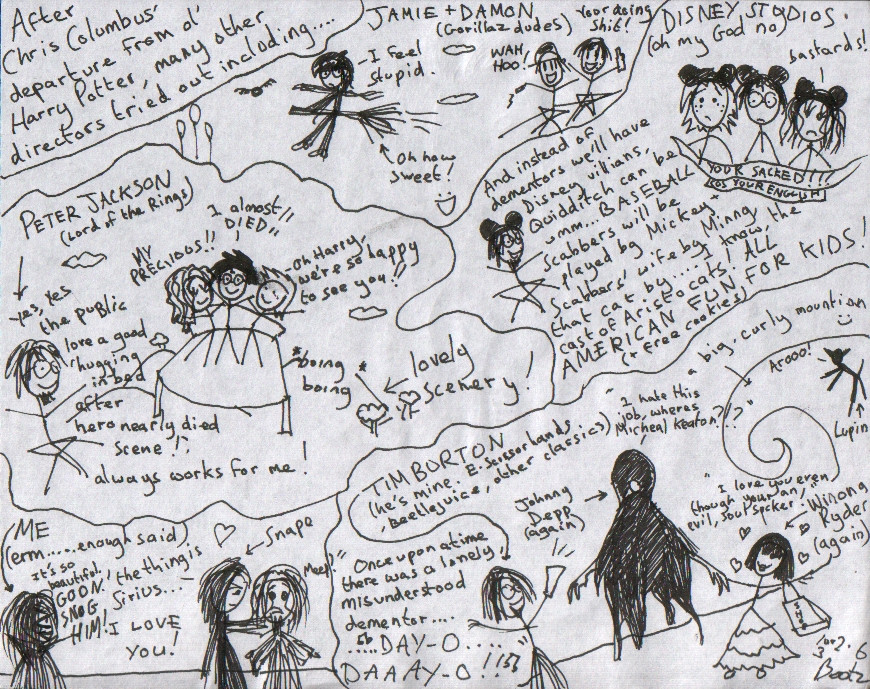 After
Chris Columbus'
departure from ol'
Harry Potter, many other
directors tried out including....
JAMIE + DAMON
(Gorillaz dudes)
I feel
stupid.
WAH
HOO!
Your doing
shit!
Oh how
sweet!
DISNEY STUDIOS.
(oh my God no)
bastards!
YOUR SACKED!!!
COS YOUR ENGLISH
And instead of
dementors we'll have
Disney villians,
Quidditch can be
umm...BASEBALL
scabbers will be
played by Mickey,
Scabbers' wife by Minny
that cat by.... I know, the
cast of Aristocats! ALL
AMERICAN FUN FOR KIDS!
(+ free cookies)
PETER JACKSON
(Lord of the Rings)
MY
PRECIOUS!!
I almost
DIED!!
Oh Harry,
we're so happy
to see you!!
yes, yes
the public
love a good
hugging
in bed
after
hero nearly died
scene!,
always works for me!
*boing
boing
*
lovely
scenery!
TIM BURTON
(he's mine. E. Scissorhands
, beetlejuice, other classics)
"I hate this
job, wheres
Micheal Keaton?!?"
a big, curly mountian
Arooo!
Lupin
Johnny
Depp
(again)
"I love you even
though your an
evil, soul sucker,"
Winona
Ryder
(again)
"Once upon a time
there was a lonely
misunderstood
dementor....
....DAY-O....
DAAAY-O!!
ME
(erm.....enough said)
It's so
beautiful,
GOON!
SNOG
HIM!
the thing is
Sirius....
I LOVE
YOU!
Snape
Meep!
Bootz